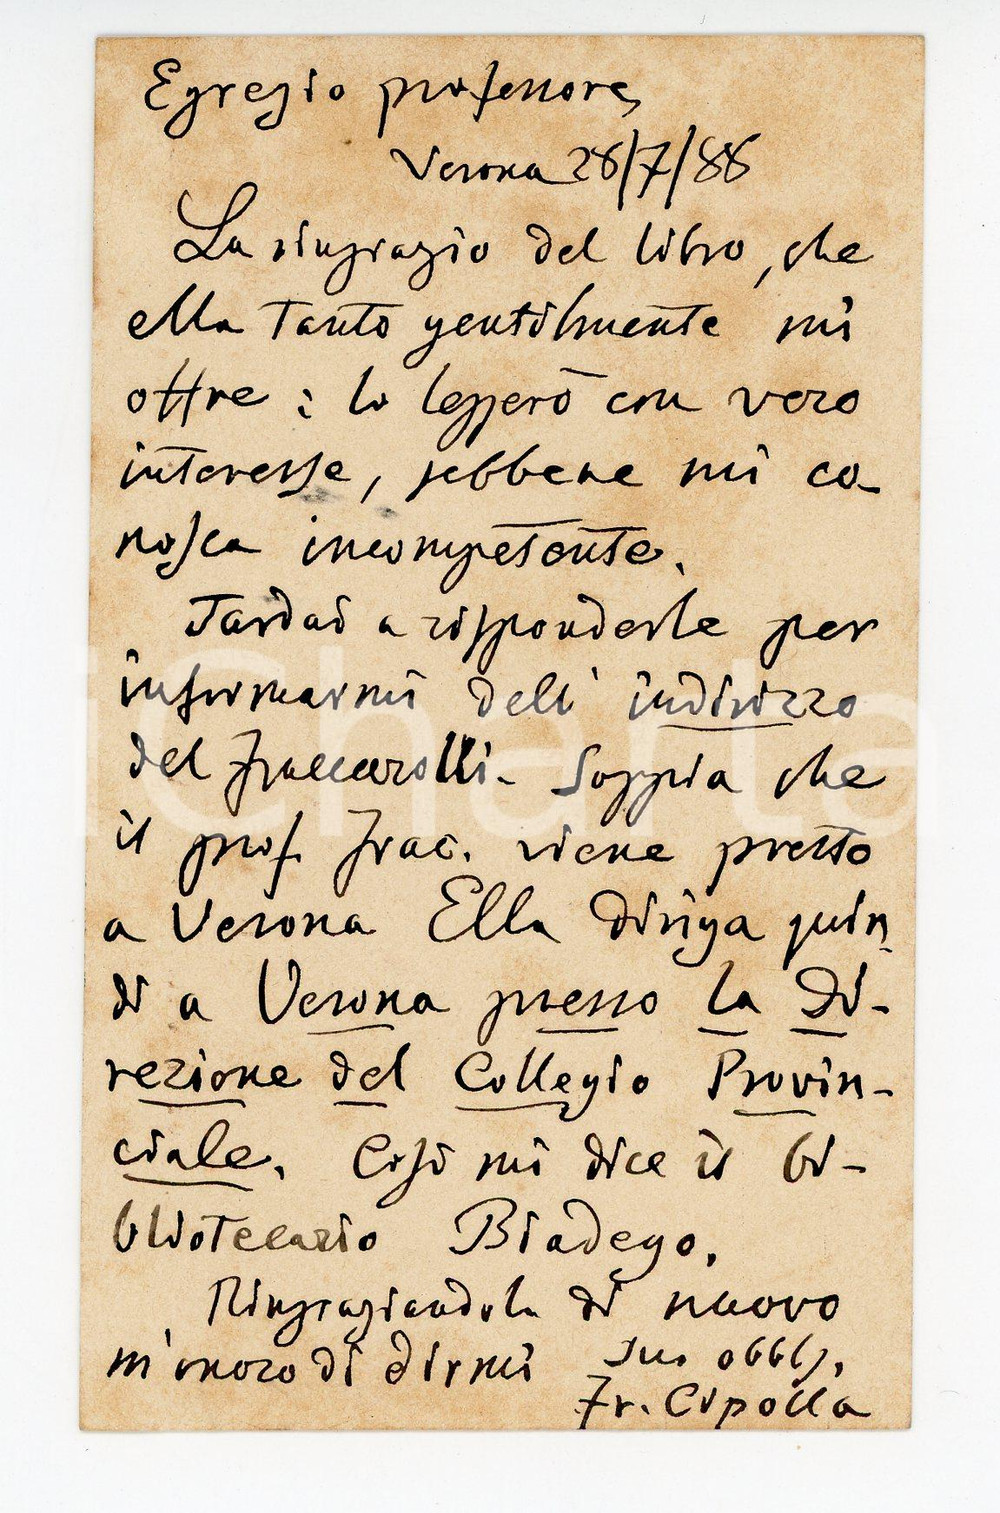 Egregio professore,
Verona 28/7/88
La ringrazio del libro, che
ella tanto gentilmente mi
offre: lo leggerò con vero
interesse, sebbene mi co-
nosca incompetente.
Tardai a risponderle per
informarmi dell' indirizzo
del Fraccarolli. Soggia che
il prof. Frac. viene presto
a Verona Ella diriga quin
di a Verona presso la Di-
rezione del Collegio Provin-
ciale. Così mi dice il bi-
bliotecario Biadego.
Ringraziandola di nuovo
m'onoro di dirmi Suo obbl.
Fr. Cipolla
iCharta